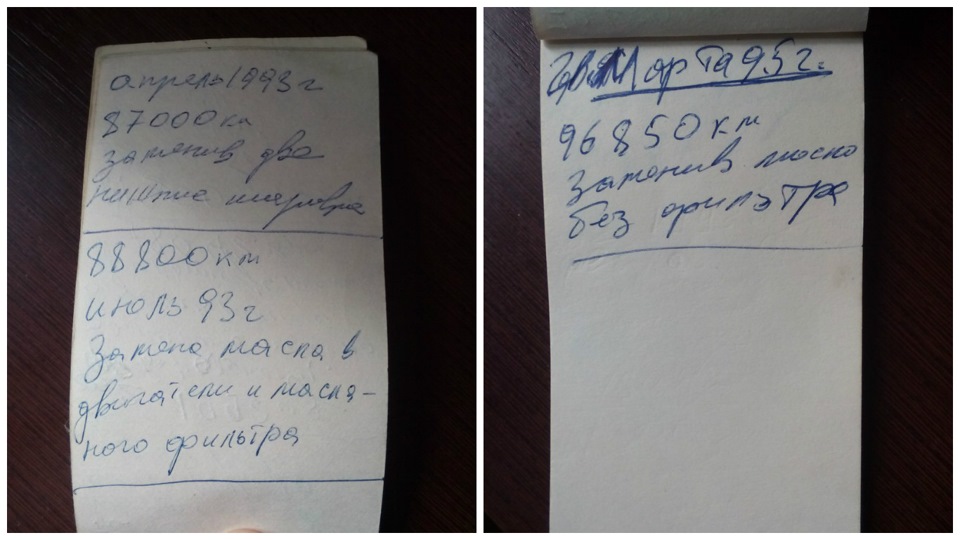 апрель 1993 г
87000 км
заменив два
нижние шаровра
88800 км
июль 93 г
Замена масла в
двигатели и масля-
ного фильтра
марта 95 г.
96850 км
Заменив масло
без фильтра